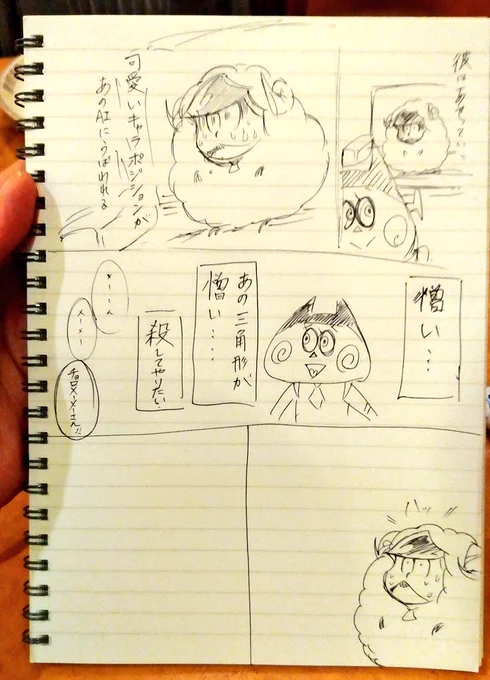 彼はあせっていた
可愛いキャラポジションが
あのAIにうばわれる
憎い…
あの三角形が
憎い……
殺してやりたい
チョロメーメーさん!!
ハッ